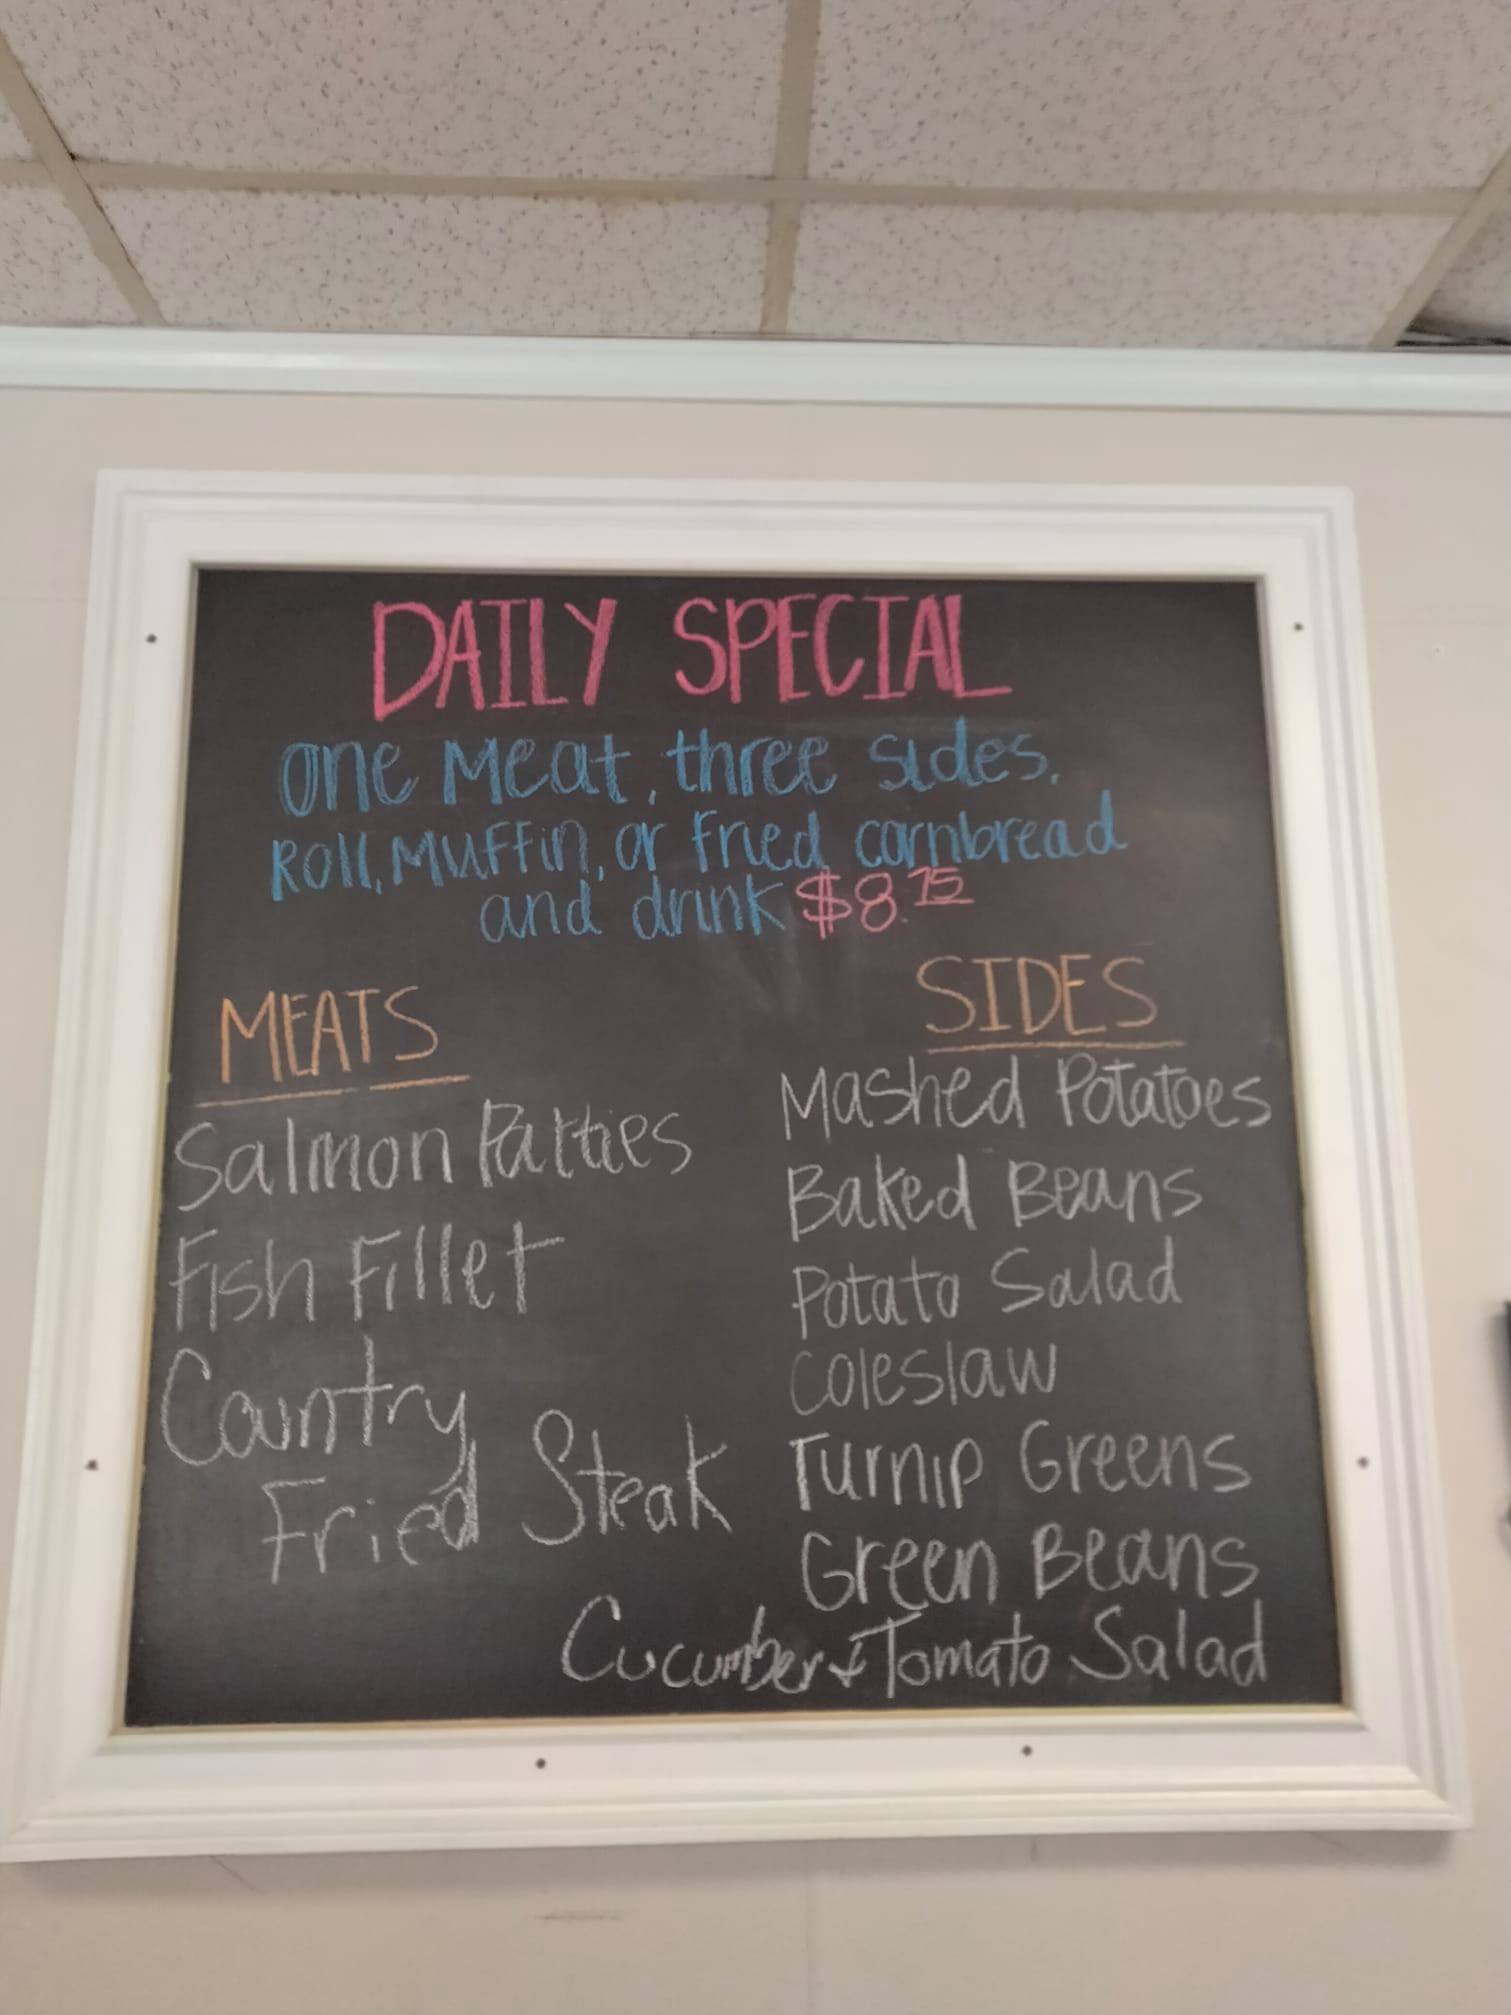 DAILY SPECIAL
One Meat, three sides.
Roll, Muffin, or Fried cornbread
and drink $8.75
MEATS
Salmon Patties
Fish Fillet
Country
Fried Steak
SIDES
Mashed Potatoes
Baked Beans
Potato Salad
Coleslaw
Turnip Greens
Green Beans
Cucumber & Tomato Salad